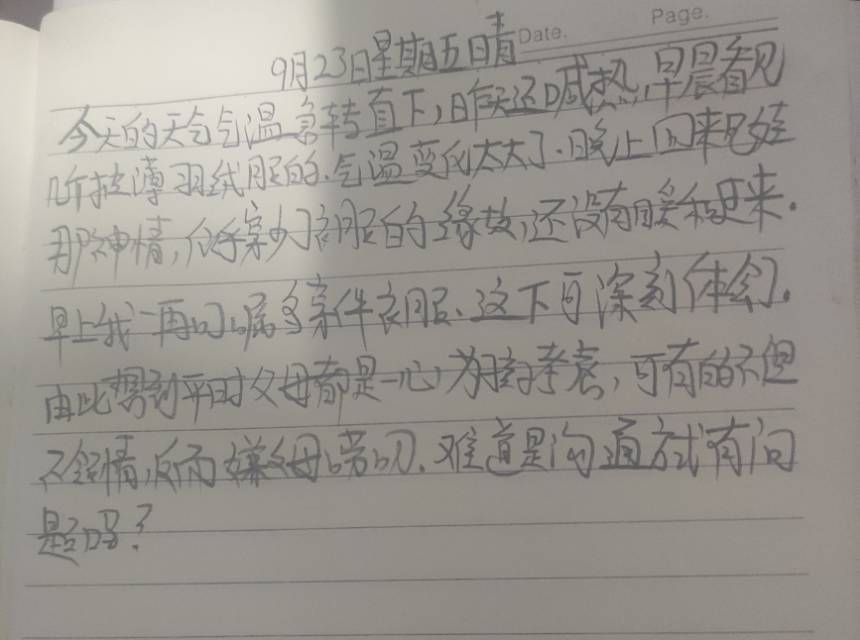 Date.
Page.
9月23日星期五晴
今天的天气气温急转直下,昨天还喊热,早晨看见
几个披薄羽绒服的.气温变化太大了.晚上回来见娃
那神情,似乎穿少了衣服的缘故,还没有暖和过来.
早上我一再叮嘱多穿件衣服.这下可深刻体会了.
由此想到平时父母都是一心为孩子考虑,可有的不但
不领情,反而嫌父母唠叨.难道是沟通方式有问
题吗?